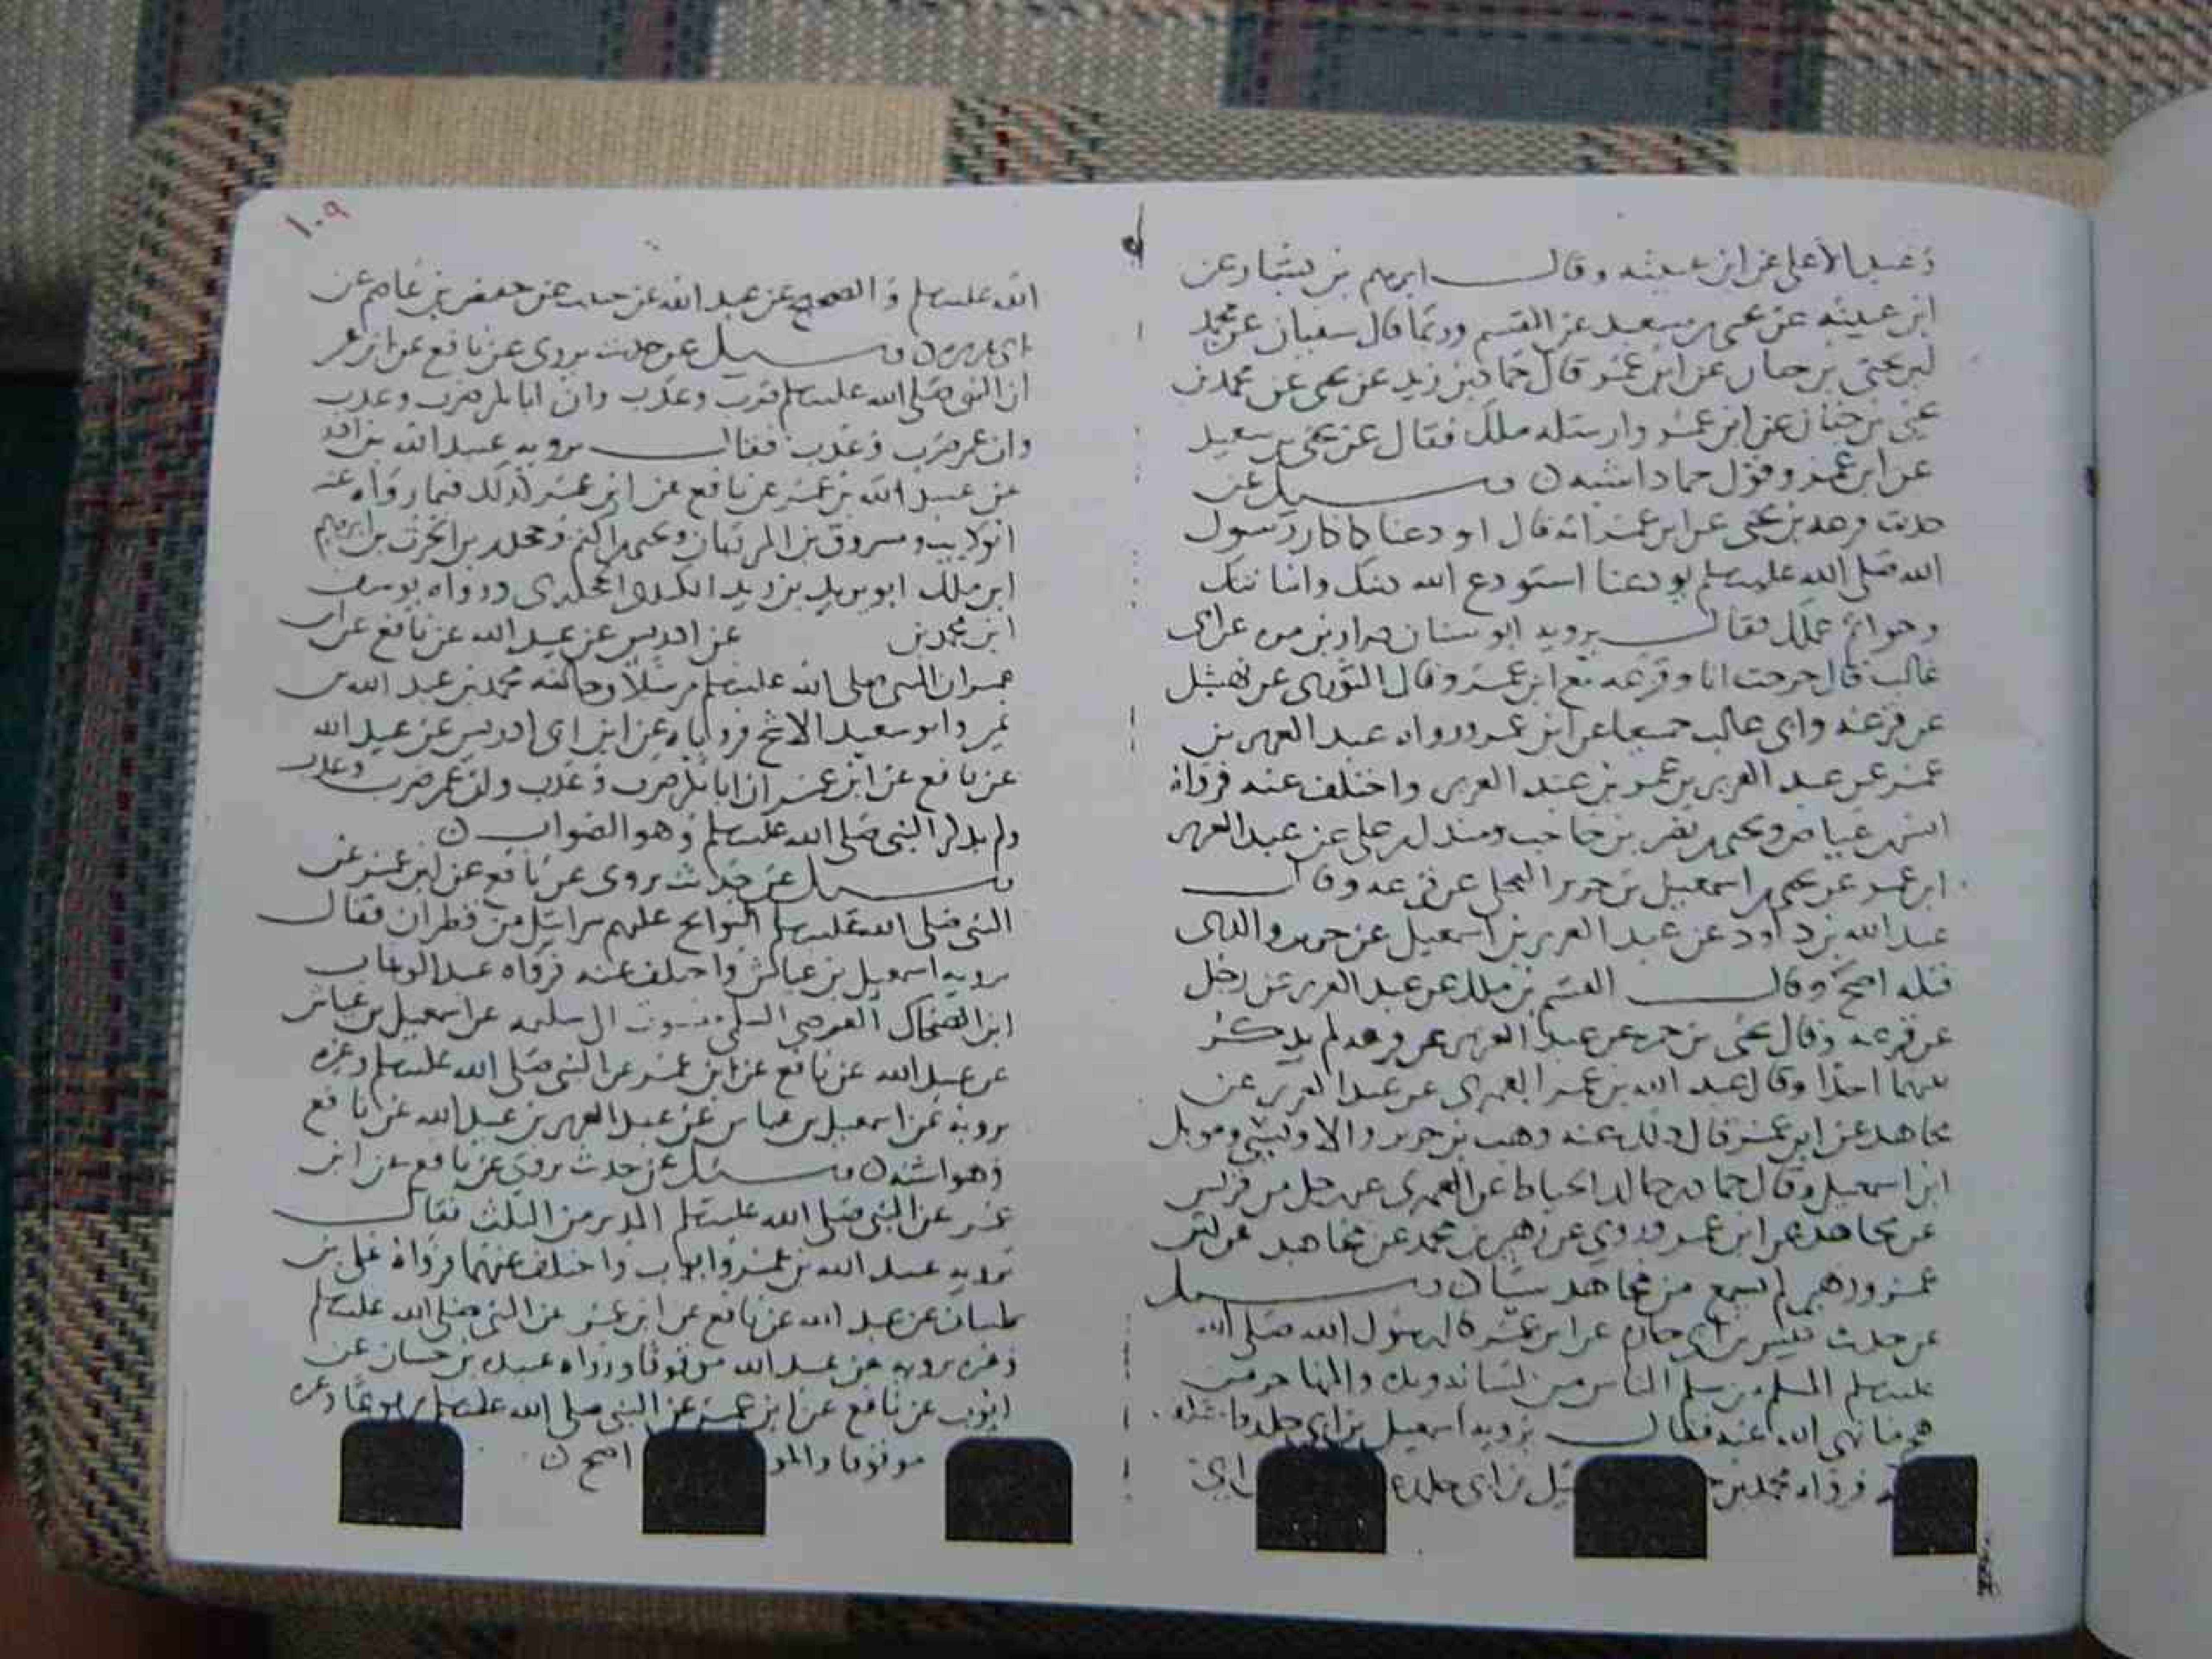 وعبد الاعلى عن ابن عيينه وقال ابرهيم بن بشار عن
ابن عيينه عن يحيى بن سعيد عن القسم وربما قال سفيان عن محمد
ابن يحيى بن حبان عن ابن عمر قال حماد بن زيد عن يحيى عن محمد بن
يحيى بن حبان عن ابن عمر وارسله ملك فقال عن يحيى بن سعيد
عن ابن عمر وقول حماد اشبه ن وسيل عن
حديث قزعه بن يحيى عن ابن عمر انه قال اودعنا كما كان رسول
الله صلى الله عليه وسلم يودعنا استودع الله دينك وامانتك
وخواتم عملك فقال يرويه ابو سنان ضرار بن مره عن ابي
غالب قال خرجت انا وقزعه مع ابن عمر وقال الثوري عن نهشل
عن قزعه وابي غالب جميعا عن ابن عمر ورواه عبد العزيز بن
عمر عن عبد العزيز بن عمر بن عبد العزيز واختلف عنه فرواه
انس بن عياض ويحيى بن نصر بن حاجب ومندل بن علي عن عبد العزيز
ابن عمر عن يحيى بن اسمعيل بن جرير البجلي عن قزعه وقال
عبد الله بن داود عن عبد العزيز بن اسمعيل عن جرير والذي
قبله اصح وقال القسم بن ملك عن عبد العزيز عن رجل
عن قزعه وقال يحيى بن حمزه عن عبد العزيز عن قزعه لم يذكر
بينهما احدا وقال عبد الله بن عمر العمري عن عبد العزيز عن
مجاهد عن ابن عمر قال ذلك عنه وهب بن جرير والاويسي ومومل
ابن اسمعيل وقال حماد بن خالد الخياط عن العمري عن رجل من قريش
عن مجاهد عن ابن عمر وروي عن زهير بن محمد عن مجاهد عن ابن
عمر وزهير لم يسمع من مجاهد شيا ن وسيل
عن حديث قيس بن ابي حازم عن ابن عمر قال رسول الله صلى الله
عليه وسلم المسلم من سلم الناس من لسانه ويده والمهاجر من
هجر ما نهى الله عنه فقال يرويه اسمعيل بن ابي خلد
فرواه محمد بن بن ابي خلد
الله عليه وسلم والصحيح عن عبيد الله عن خبيب عن حفص بن عاصم عن
ابي هريره ن وسيل عن حديث يروى عن نافع عن ابن عمر
ان النبي صلى الله عليه وسلم ضرب وغرب وان ابا بكر ضرب وغرب
وان عمر ضرب وغرب فقال يرويه عبد الله بن ادريس
عن عبيد الله بن عمر عن نافع عن ابن عمر كذلك فيما رواه عنه
ابو كريب ومسروق بن المرزبان ويحيى بن اكثم وجحدر بن الحرث بن ابرهيم
ابن ملك ابو بن زيد ورواه يوسف
ابن محمد بن عن ادريس عن عبيد الله عن نافع عن ابن
عمر ان النبي صلى الله عليه وسلم مرسلا وخالفه محمد بن عبد الله بن
نمير وابو سعيد الاشج فروياه عن ابن ادريس عن عبيد الله
عن نافع عن ابن عمر ان ابا بكر ضرب وغرب وان عمر ضرب وغرب
ولم يذكر النبي صلى الله عليه وسلم وهو الصواب ن
وسيل عن حديث يروى عن نافع عن ابن عمر عن
النبي صلى الله عليه وسلم النوائح عليهم سرابيل من قطران فقال
يرويه اسمعيل بن عياش واختلف عنه فرواه عبد الوهاب
ابن الضحاك العرضي السلمي عن اسمعيل بن عياش
عن عبيد الله عن نافع عن ابن عمر عن النبي صلى الله عليه وسلم وغيره
يرويه عن اسمعيل بن عياش عن عبد العزيز بن عبيد الله عن نافع
وهو اشبه ن وسيل عن حديث يروى عن نافع عن ابن
عمر عن النبي صلى الله عليه وسلم المدبر من الثلث فقال
يرويه عبيد الله بن عمر وايوب واختلف عنهما فرواه علي بن
ظبيان عن عبيد الله عن نافع عن ابن عمر عن النبي صلى الله عليه وسلم
وغيره يرويه عن عبيد الله موقوفا ورواه عبيده بن حسان عن
ايوب عن نافع عن ابن عمر عن النبي صلى الله عليه وسلم مرفوعا وغيره
موقوفا والمو اصح ن
١٠٩